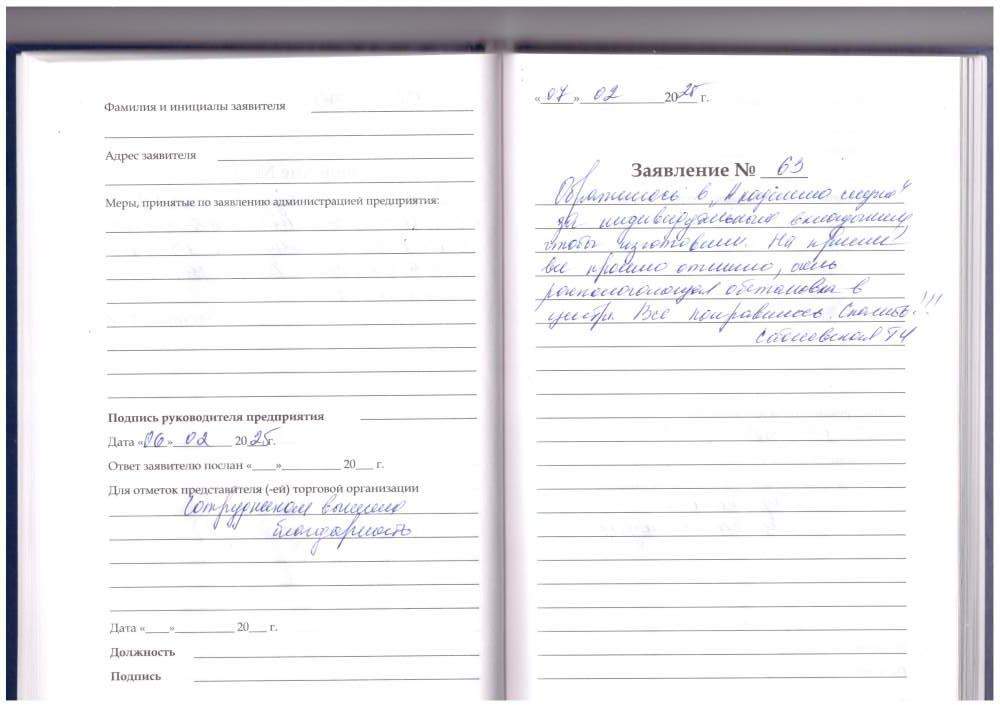 Фамилия и инициалы заявителя
Адрес заявителя
Меры, принятые по заявлению администрацией предприятия:
Подпись руководителя предприятия
Дата «06» 02 2025г.
Ответ заявителю послан «____»__________ 20___ г.
Для отметок представителя (-ей) торговой организации
Сотрудникам вынесена
благодарность
Дата «____»__________ 20___ г.
Должность
Подпись
«07» 02 2025 г.
Заявление № 63
Обратилась в „Академию слуха"
за индивидуальным вкладышем,
чтобы изготовили. На приеме
все прошло отлично, очень
распологающая обстановка в
центре. Все понравилось. Спасибо!!!